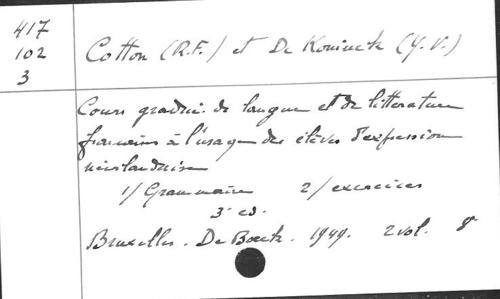 417
102
3
Cotton (R.F.) et De Koninck (Y.V.)
Cours gradué de langue et de litterature
française à l'usage des élèves d'expression
néerlandaise
1/ Grammaire 2/ exercices
3e ed.
Bruxelles. De Boeck. 1949. 2 vol. 8°